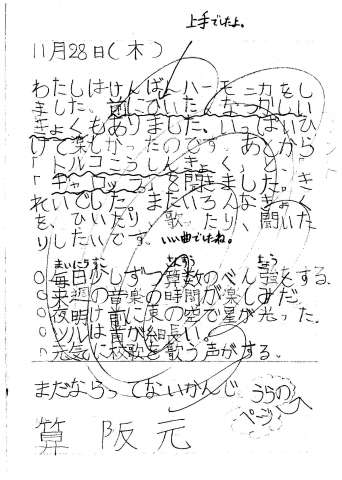 上手でしたよ。
11月28日(木)
わたしはけんばんハーモニカをし
ました。前にひいた、なつかしい
きょくもありました。いっぱいひ
けて楽しかったのです。あとから
「トルコこうしんきょく」と
「キャロップ」を聞きました。き
れいでした。またいろんなきょく
を、ひいたり、歌ったり、聞いた
りしたいです。いい曲でしたね。
まいにち さんすう きょう
○毎日かしずつ算数のべん強をする。
○来週の音楽の時間が楽しみだ。
○夜明け前に東の空で星が光った。
○ツルは首が細長い。
○元気に校歌を歌う声がする。
まだならってないかんじ
うらの
ページへ
算 阪 元